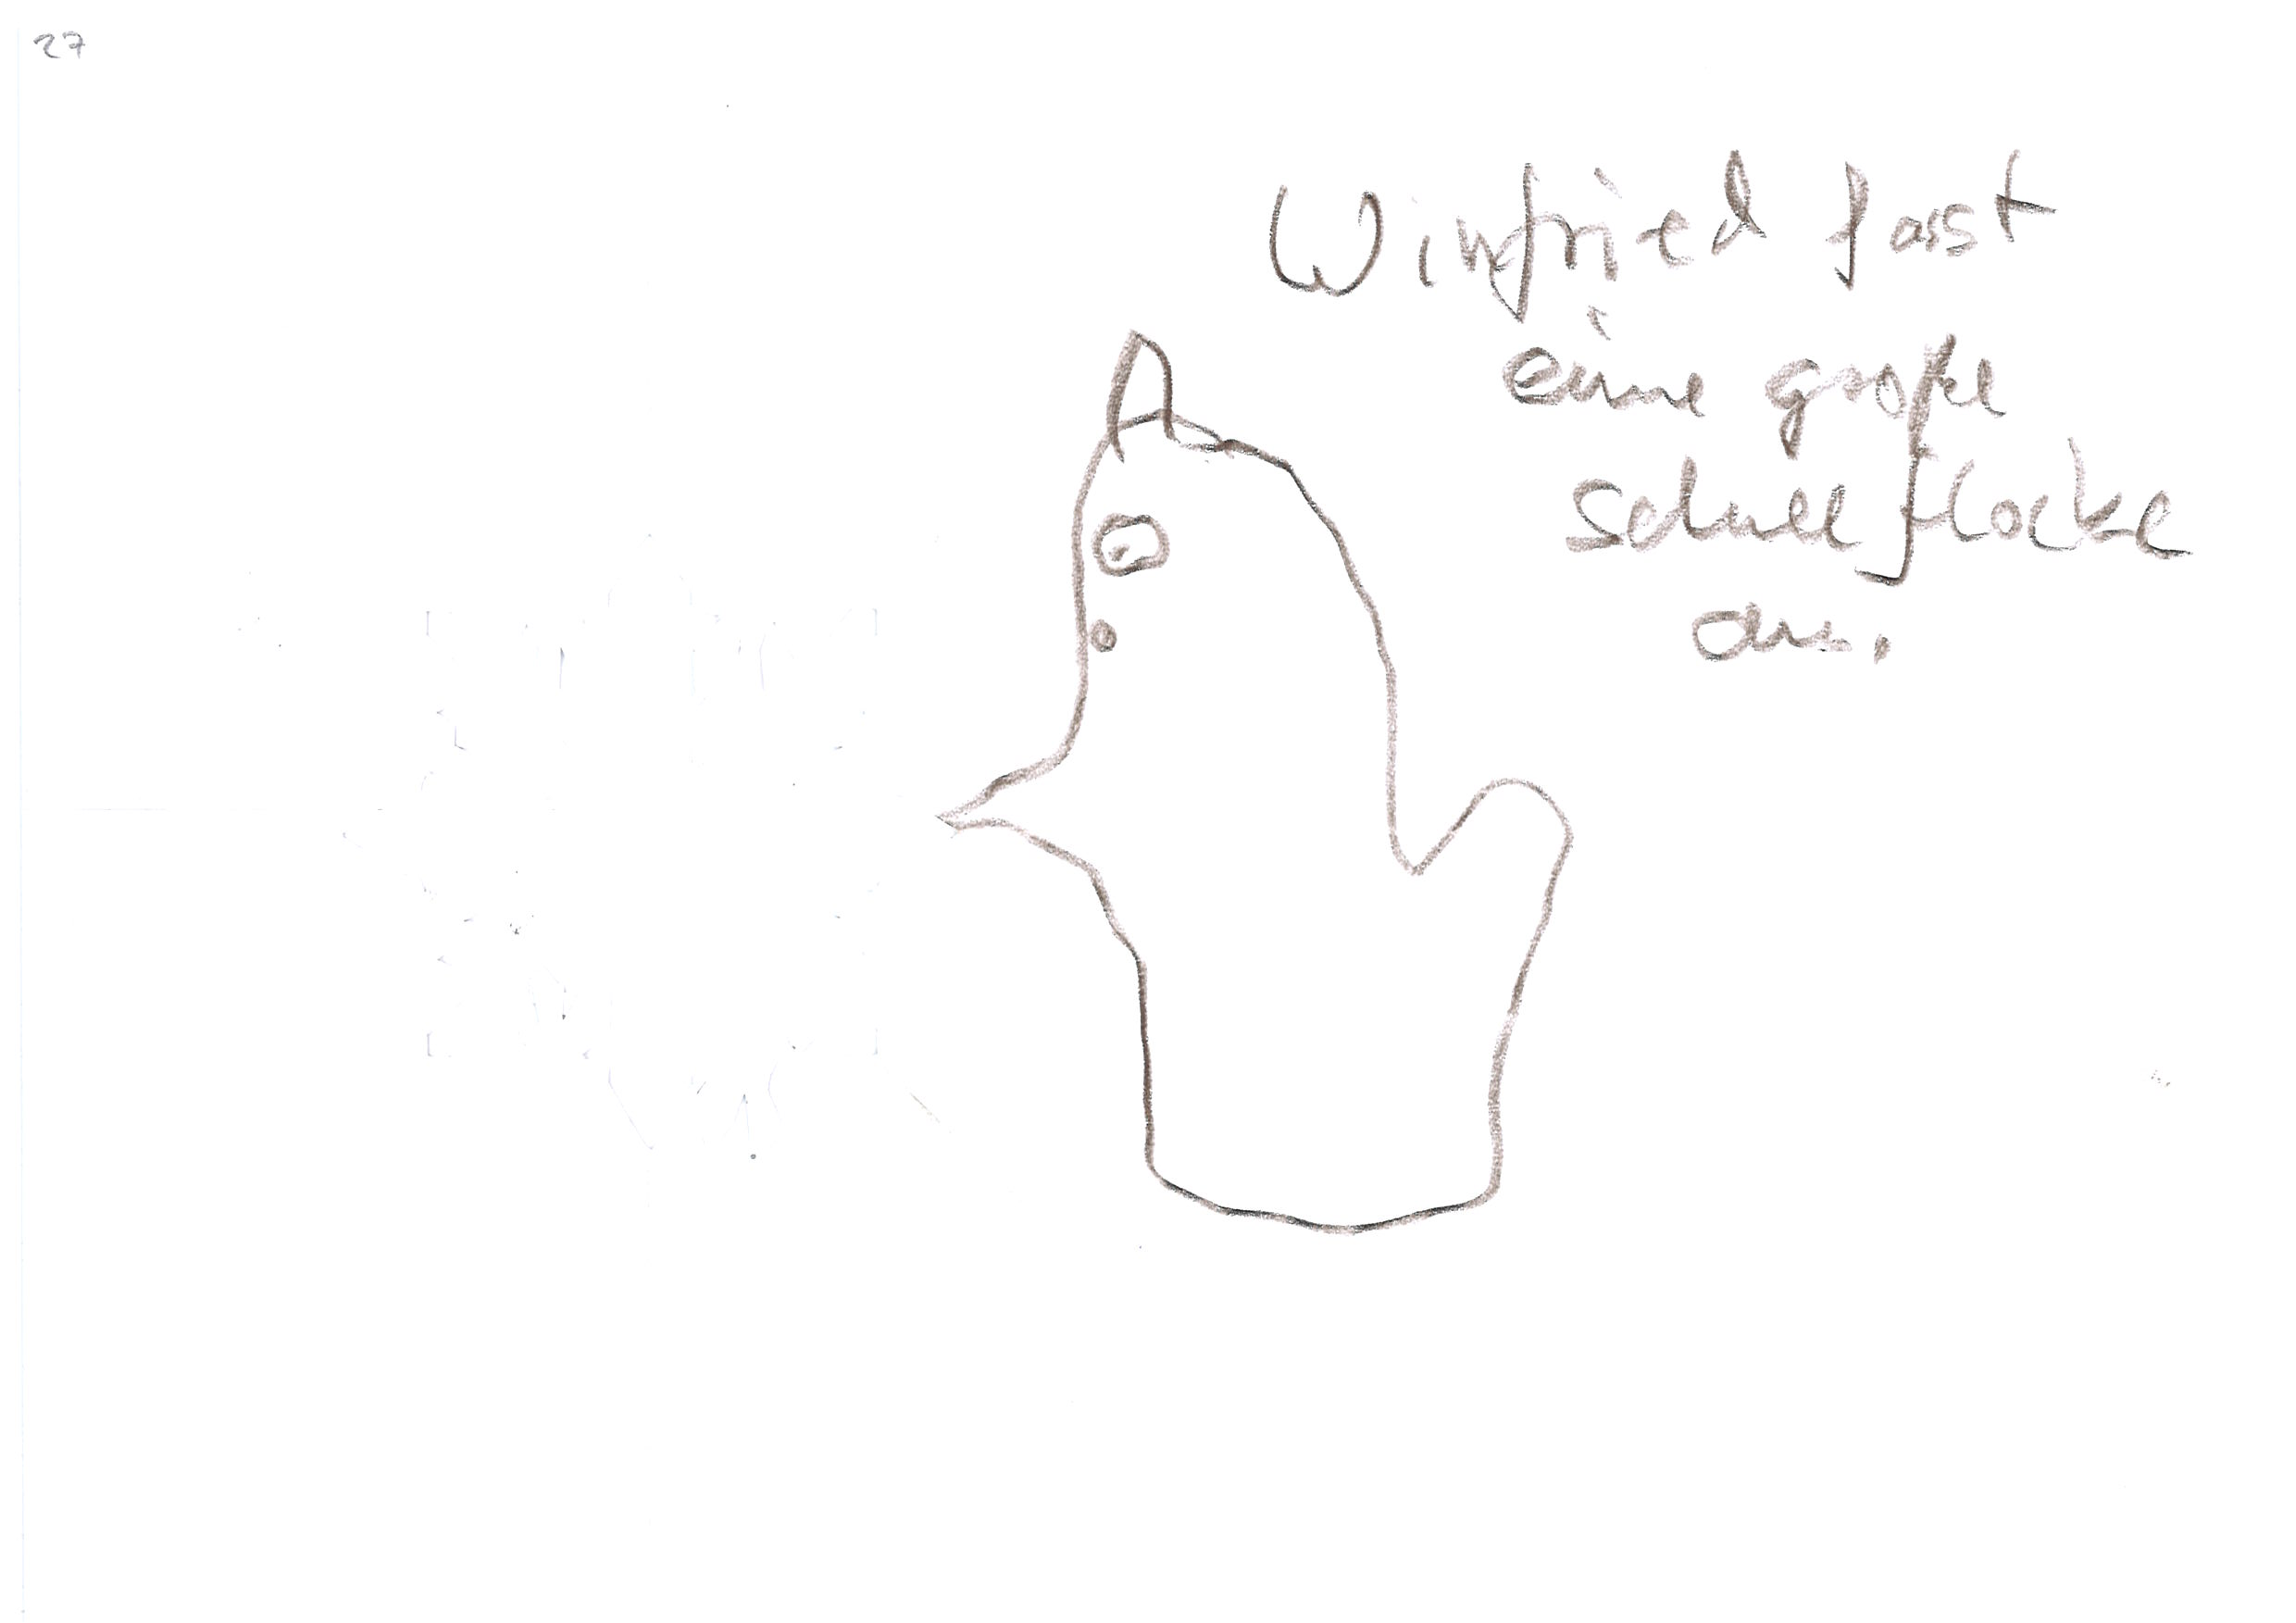 27
Winfried fasst
eine große
schneeflocke
an.